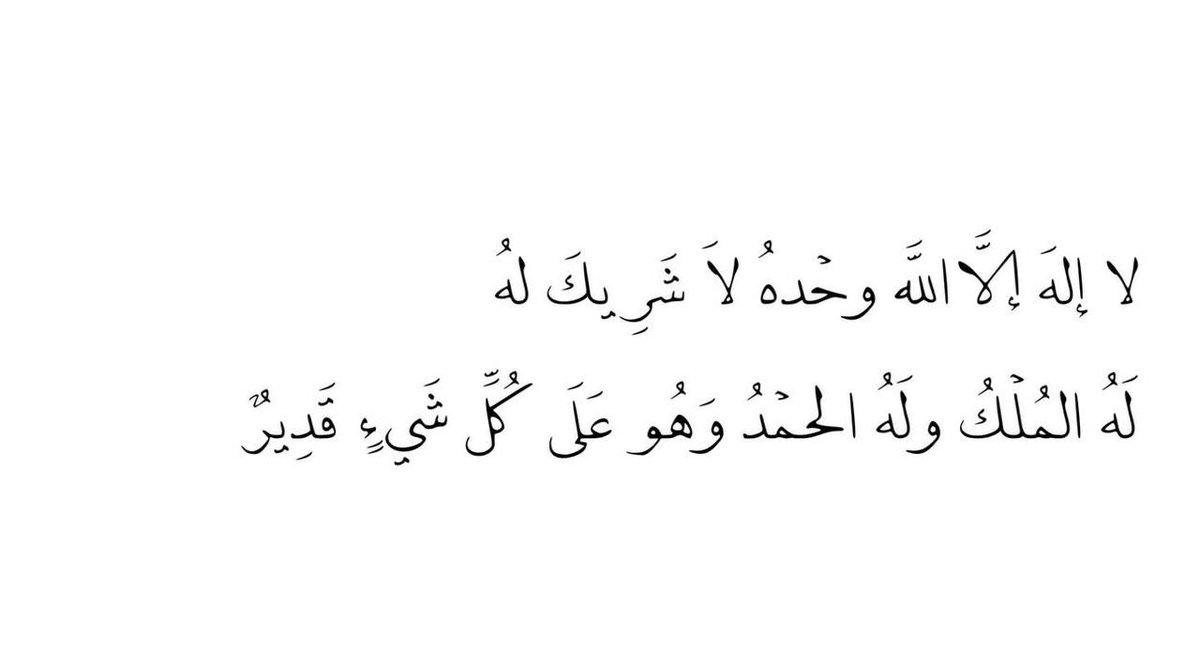 لا إلهَ إلَّا اللَّه وحْدهُ لاَ شَرِيكَ لهُ
لَهُ المُلْكُ ولَهُ الحمْدُ وَهُو عَلَى كُلِّ شَيءٍ قَدِيرٌ